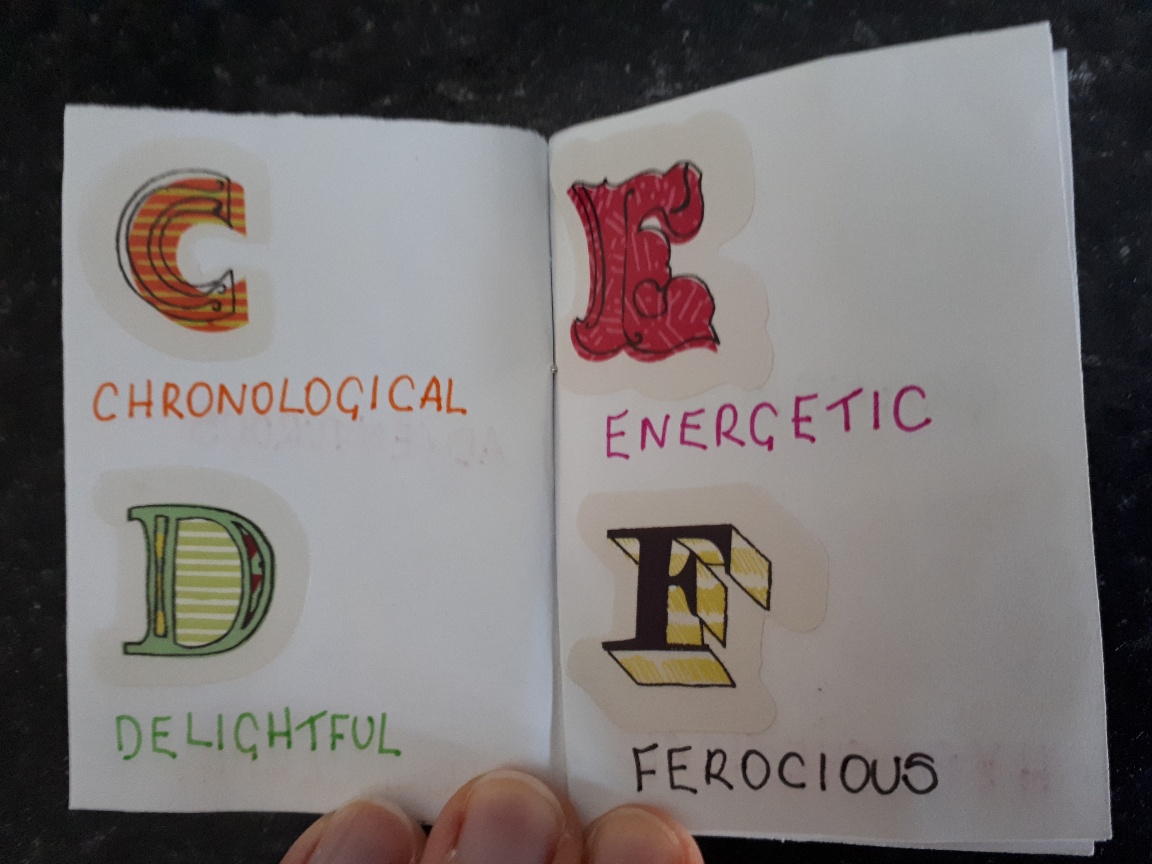 C
CHRONOLOGICAL
D
DELIGHTFUL
E
ENERGETIC
F
FEROCIOUS